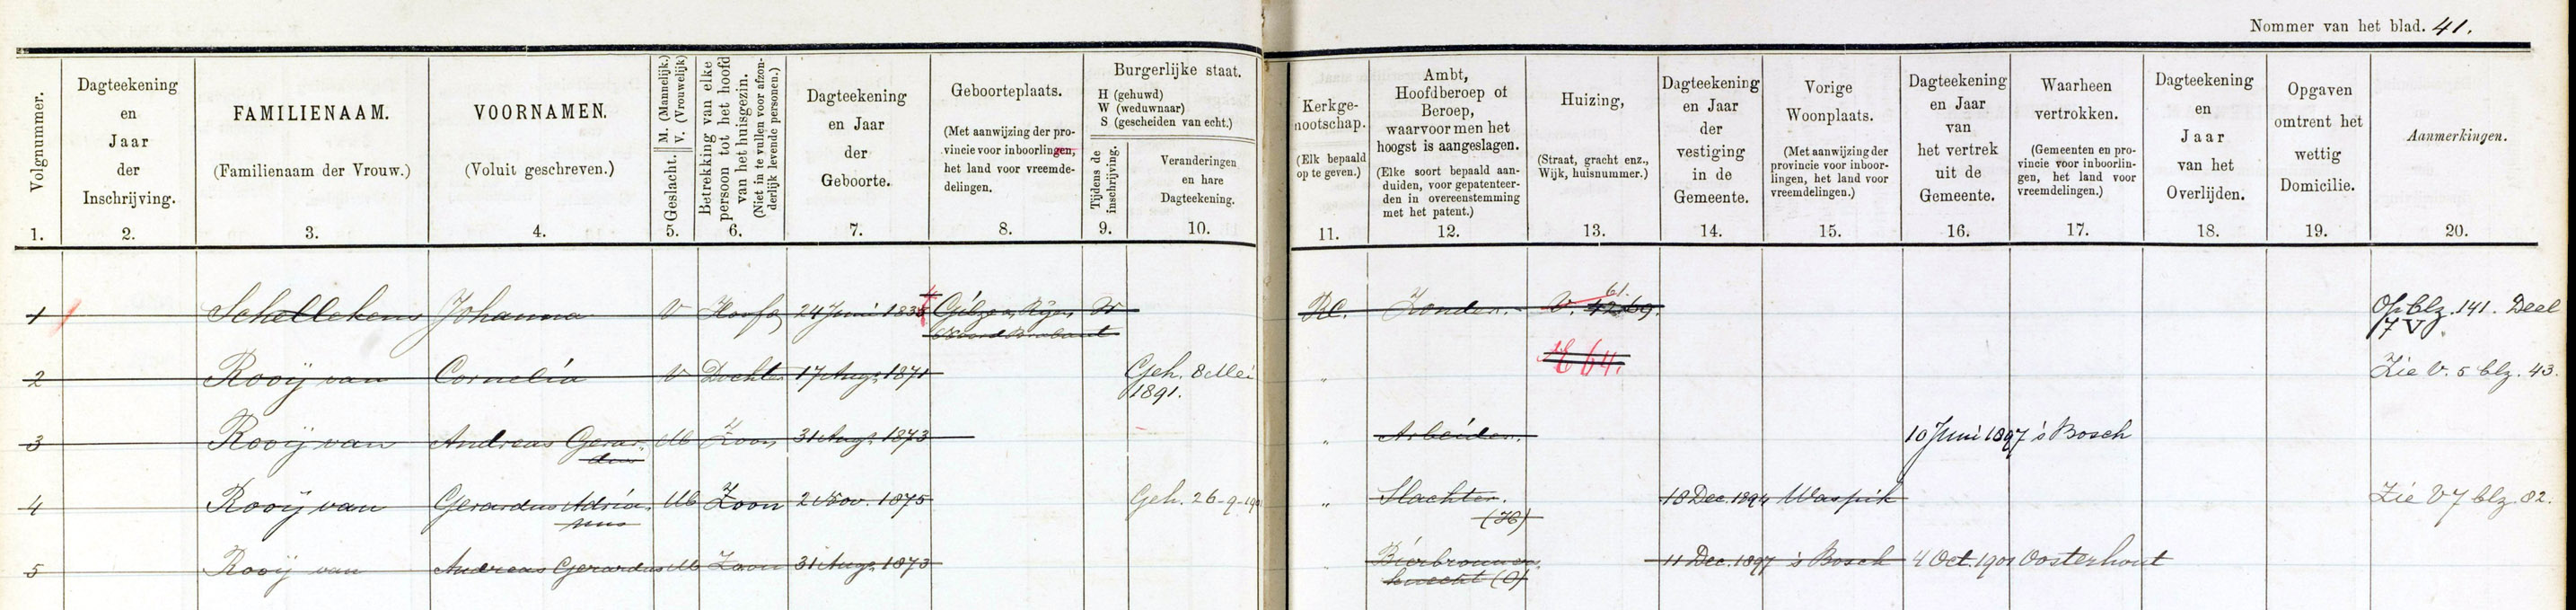 Nommer van het blad. 41.
Volgnummer.
1.
Dagteekening
en
Jaar
der
Inschrijving.
2.
FAMILIENAAM.
(Familienaam der Vrouw.)
3.
VOORNAMEN.
(Voluit geschreven.)
4.
Geslacht. M. (Mannelijk.)
V. (Vrouwelijk)
5.
Betrekking van elke
persoon tot het hoofd
van het huisgezin.
(Niet in te vullen voor afzon-
derlijk levende personen.)
6.
Dagteekening
en Jaar
der
Geboorte.
7.
Geboorteplaats.
(Met aanwijzing der pro-
vincie voor inboorlingen,
het land voor vreemde-
delingen.
8.
Burgerlijke staat.
H (gehuwd)
W (weduwnaar)
S (gescheiden van echt.)
Tijdens de
inschrijving.
9.
Veranderingen
en hare
Dagteekening.
10.
Kerkge-
nootschap.
(Elk bepaald
op te geven.)
11.
Ambt,
Hoofdberoep of
Beroep,
waarvoor men het
hoogst is aangeslagen.
(Elke soort bepaald aan-
duiden, voor gepatenteer-
den in overeenstemming
met het patent.)
12.
Huizing,
(Straat, gracht enz.,
Wijk, huisnummer.)
13.
Dagteekening
en Jaar
der
vestiging
in de
Gemeente.
14.
Vorige
Woonplaats.
(Met aanwijzing der
provincie voor inboor-
lingen, het land voor
vreemdelingen.)
15.
Dagteekening
en Jaar
van
het vertrek
uit de
Gemeente.
16.
Waarheen
vertrokken.
(Gemeenten en pro-
vincie voor inboorlin-
gen, het land voor
vreemdelingen.)
17.
Dagteekening
en
Jaar
van het
Overlijden.
18.
Opgaven
omtrent het
wettig
Domicilie.
19.
Aanmerkingen.
20.
1 Schellekens Johanna V Hoofd 24 Juni Gilze en Rijen W R.C. Zonder. V. 69. 61. Op blz. 141. Deel
Noord Brabant 7 V.
E 64.
2 Rooij van Cornelia V Dochter 17 Aug. 1871 Geh. 8 Mei " Zie V. 5 blz. 43.
1891.
3 Rooij van Andreas Gerar- M Zoon 31 Aug. 1873 " Arbeider. 10 Juni 1897 's Bosch
dus
4 Rooij van Gerardus Adria- M Zoon 2 Nov. 1875 Geh. 26-9- " Slachter. 18 Dec. 1894 Waspik Zie V 7 blz. 82.
nus (H)
5 Rooij van Andreas Gerardus M Zoon 31 Aug. 1873 " Bierbrouwer 11 Dec. 1897 's Bosch 4 Oct. 1901 Oosterhout
knecht (O)